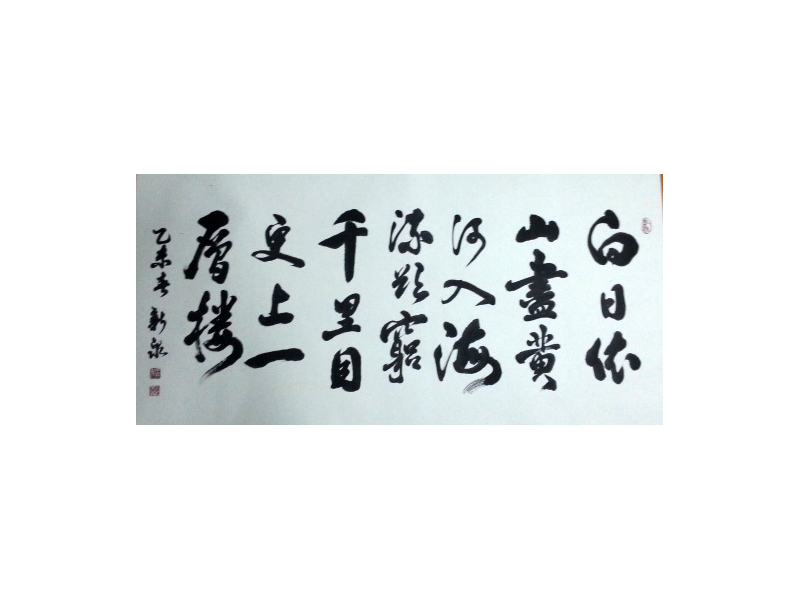 白日依
山盡黄
河入海
流欲窮
千里目
更上一
層楼
乙未春新泉